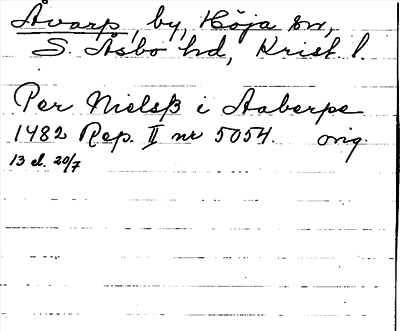 Åvarp, by, Höja sn,
S. Åsbo hd, Krist l.
Per Nielsß i Aaberpe
1482 Rep. II nr 5054. orig.
13 el. 20/7